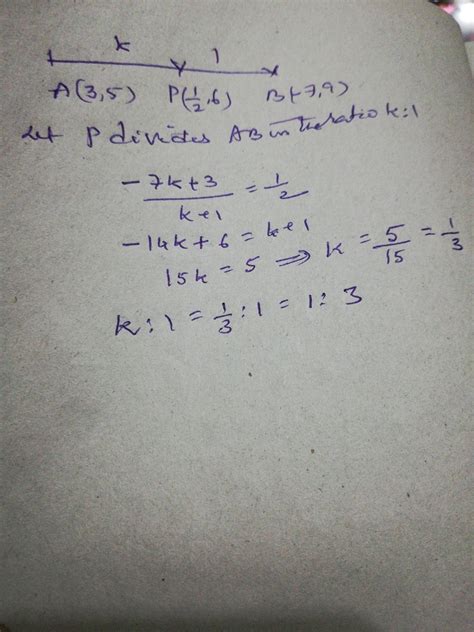 k 1
A(3,5) P(1/2,6) B(-7,9)
Let P divides AB in the ratio k:1
(-7k+3)/(k+1) = 1/2
-14k+6 = k+1
15k = 5 ⇒ k = 5/15 = 1/3
k:1 = 1/3 : 1 = 1:3